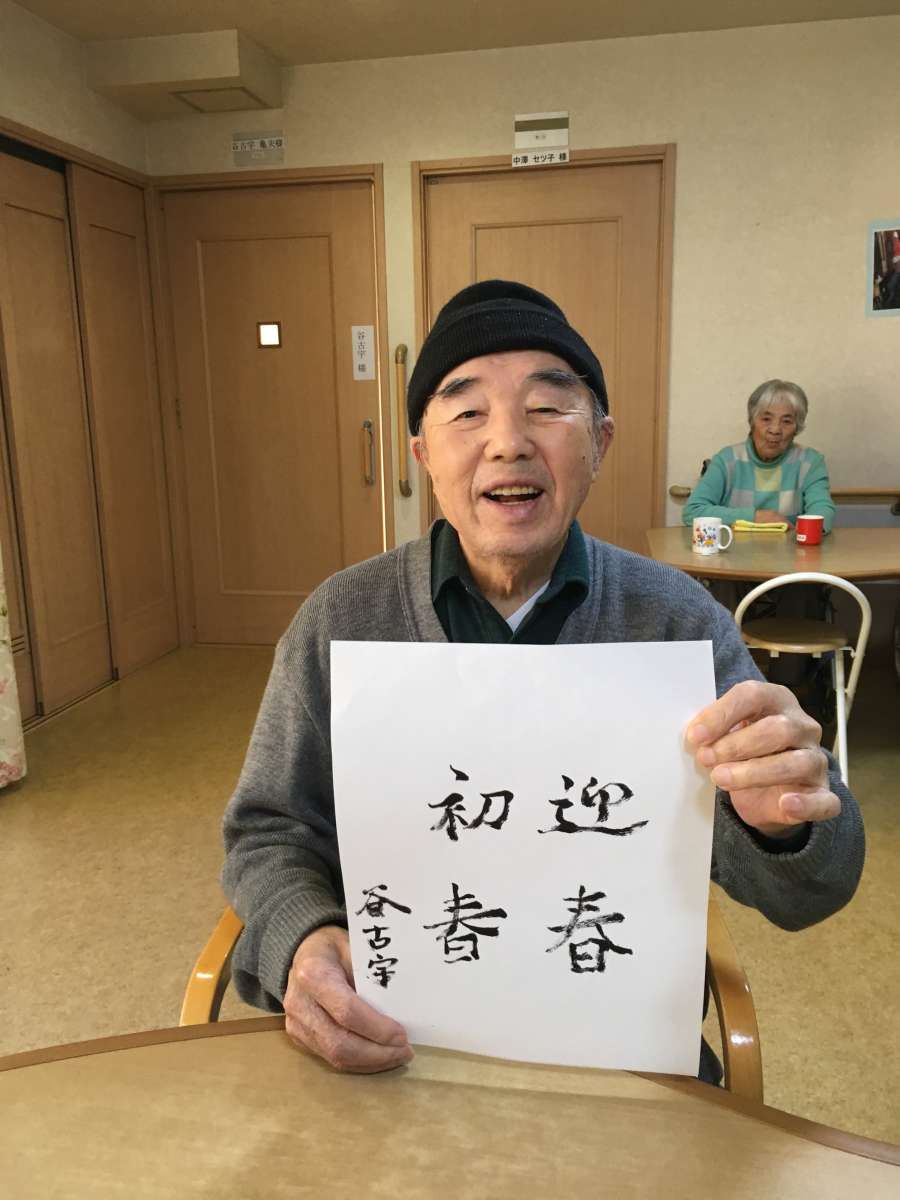 谷古宇 亀夫様
中澤 セツ子 様
谷古宇 様
迎春
初春
谷古宇